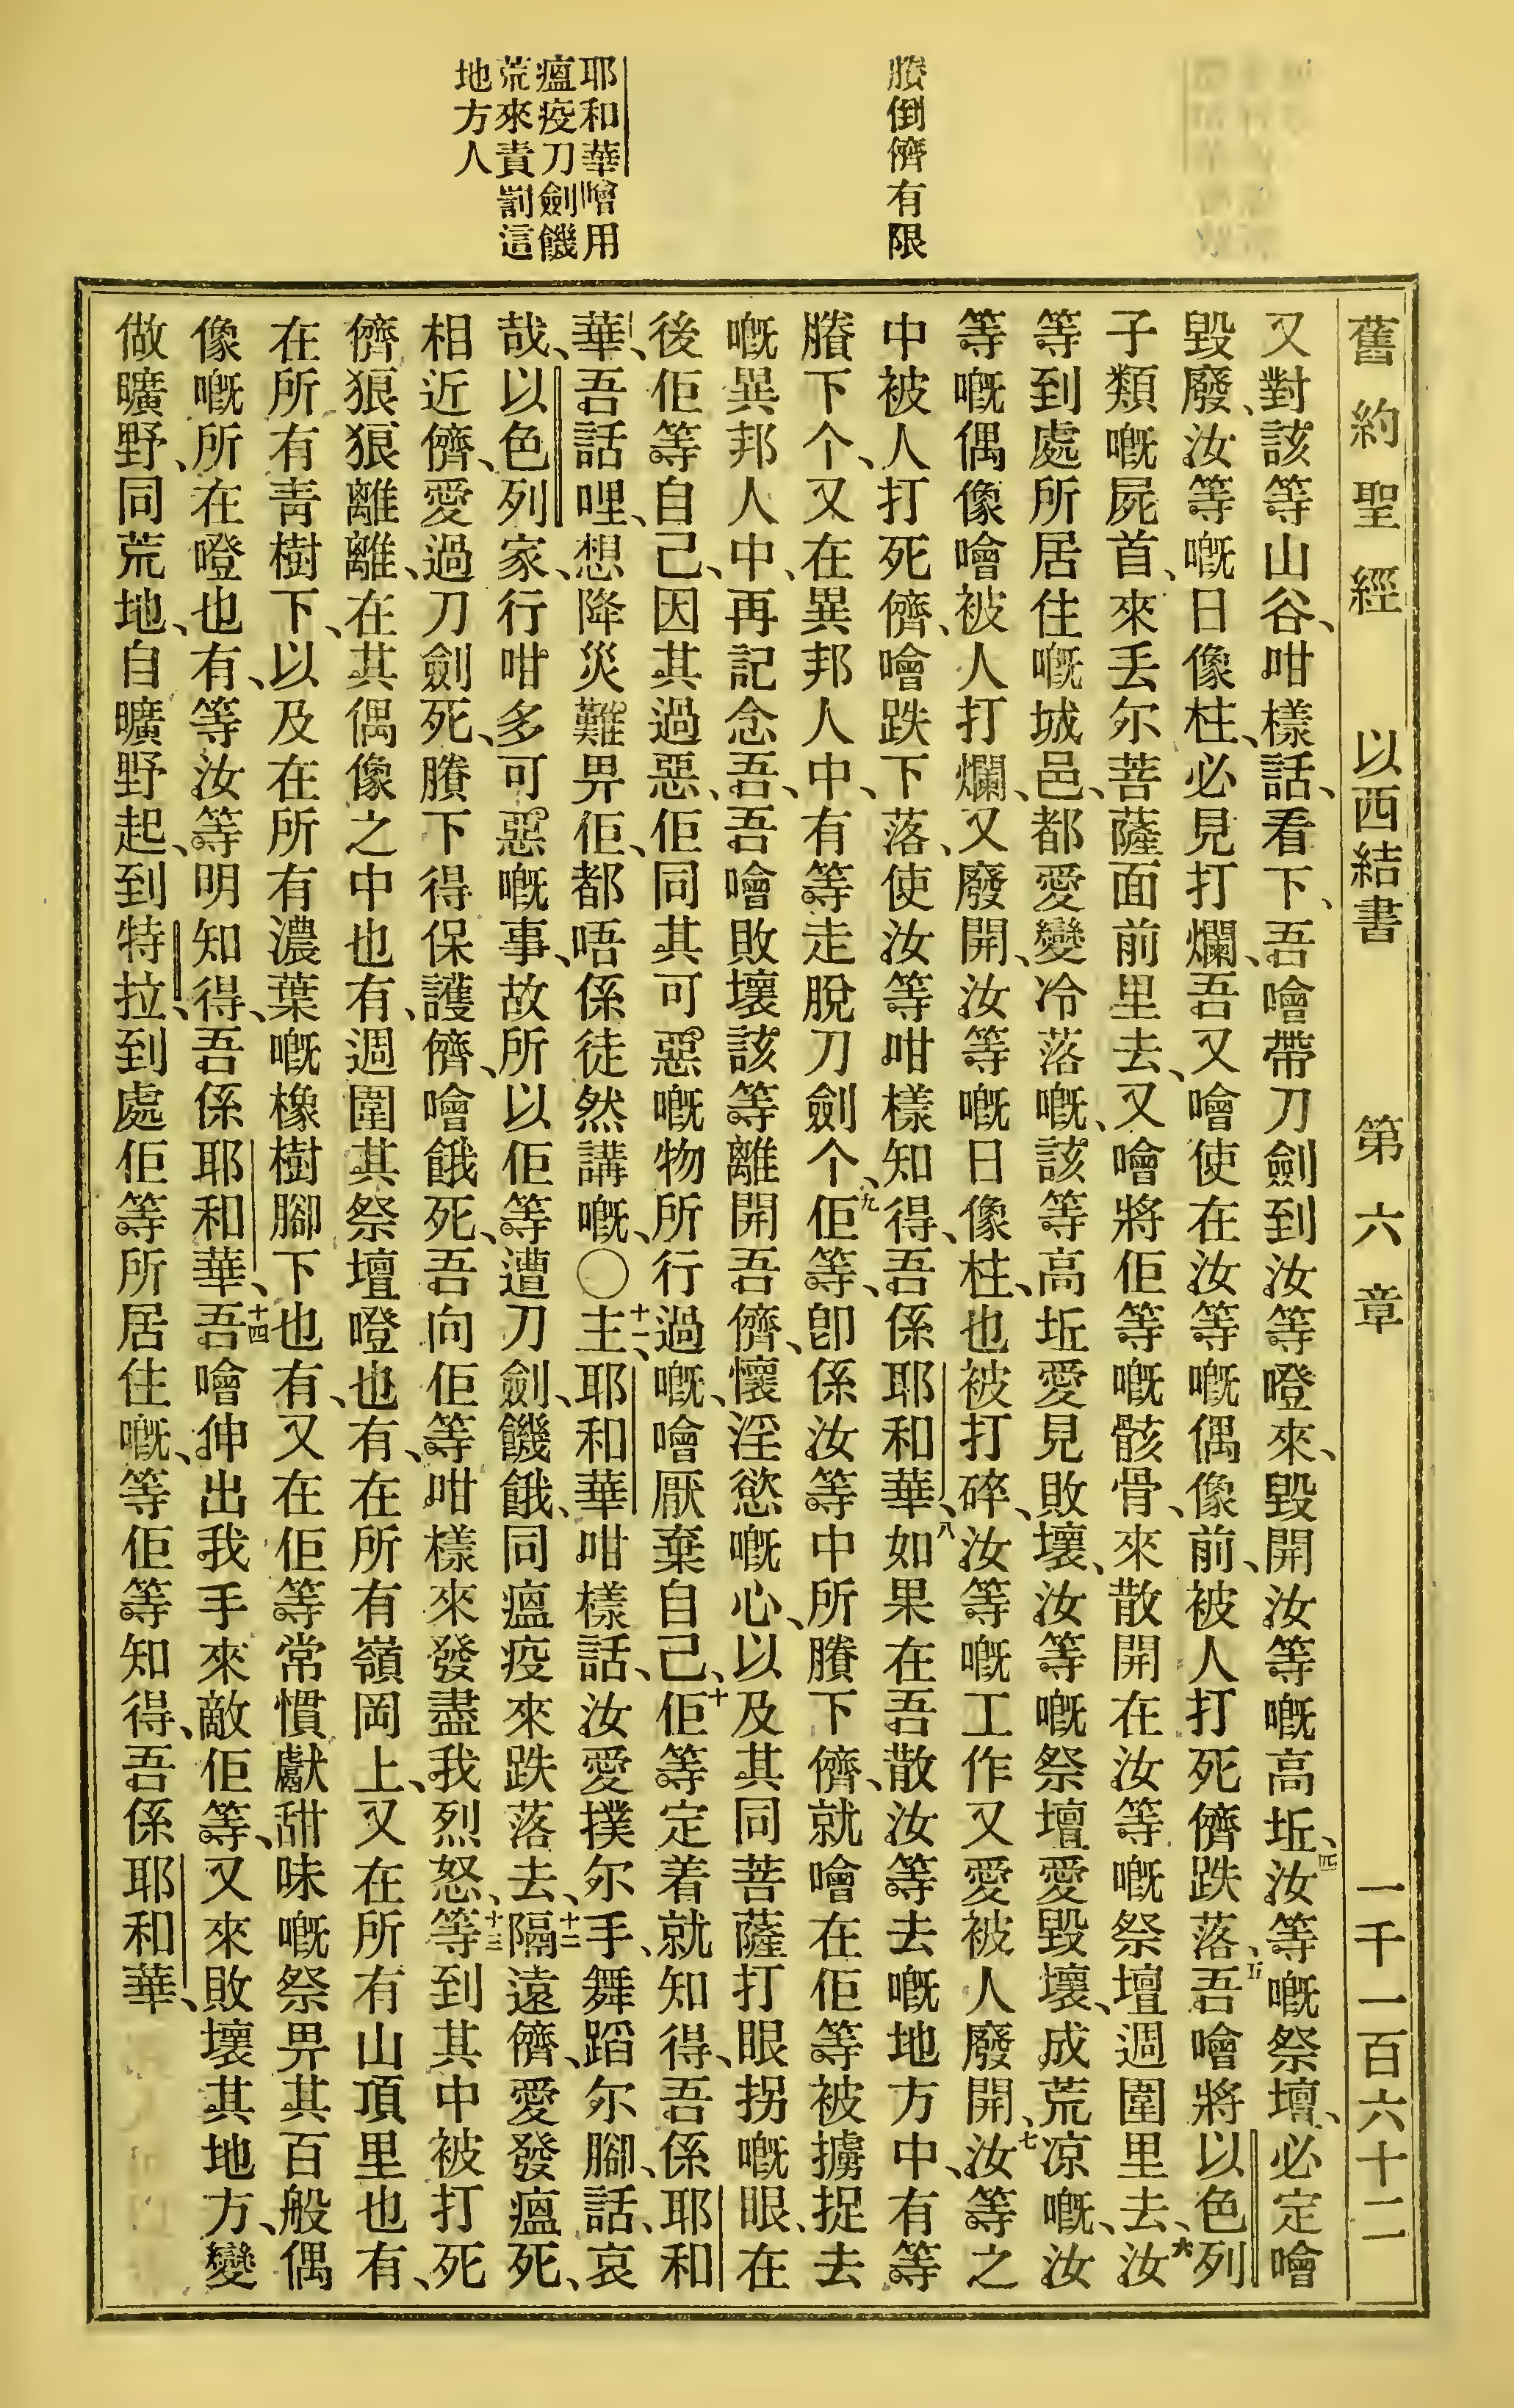 舊約聖經 以西結書 第六章 一千一百六十二
賸倒儕有限
耶和華噲用
瘟疫刀劍饑
荒來責罰這
地方人
又對該等山谷、咁樣話、看下、吾噲帶刀劍到汝等嶝來、毀開汝等嘅高坵、四汝等嘅祭壇、必定噲
毀廢、汝等嘅日像柱、必見打爛、吾又噲使在汝等嘅偶像前、被人打死儕跌落、五吾噲將以色列
子類嘅屍首、來丢尔菩薩面前里去、又噲將佢等嘅骸骨、來散開在汝等嘅祭壇週圍里去、六汝
等到處所居住嘅城邑、都愛變冷落嘅、該等高坵愛見敗壞、汝等嘅祭壇愛毀壞、成荒凉嘅、汝
等嘅偶像噲被人打爛、又廢開、汝等嘅日像柱、也被打碎、汝等嘅工作又愛被人廢開、七汝等之
中被人打死儕、噲跌下落、使汝等咁樣知得、吾係耶和華、八如果在吾散汝等去嘅地方中、有等
賸下个、又在異邦人中、有等走脫刀劍个、九佢等、卽係汝等中所賸下儕、就噲在佢等被擄捉去
嘅異邦人中、再記念吾、吾噲敗壞該等離開吾儕、懷淫慾嘅心、以及其同菩薩打眼拐嘅眼、在
後佢等自己、因其過惡、佢同其可惡嘅物所行過嘅、噲厭棄自己、十佢等定着就知得、吾係耶和
華、吾話哩、想降災難畀佢、都唔係徒然講嘅、〇十一主耶和華咁樣話、汝愛撲尔手、舞蹈尔腳、話、哀
哉、以色列家、行咁多可惡嘅事、故所以佢等遭刀劍、饑餓、同瘟疫來跌落去、十二隔遠儕、愛發瘟死、
相近儕、愛過刀劍死、賸下得保護儕、噲餓死、吾向佢等咁樣來發盡我烈怒、十三等到其中被打死
儕狼狼離離、在其偶像之中也有、週圍其祭壇嶝也有、在所有嶺岡上、又在所有山頂里也有、
在所有靑樹下、以及在所有濃葉嘅橡樹腳下也有、又在佢等常慣獻甜味嘅祭畀其百般偶
像嘅所在嶝也有、等汝等明知得、吾係耶和華、十四吾噲伸出我手來敵佢等、又來敗壞其地方、變
做曠野、同荒地、自曠野起、到特拉、到處佢等所居住嘅、等佢等知得、吾係耶和華、